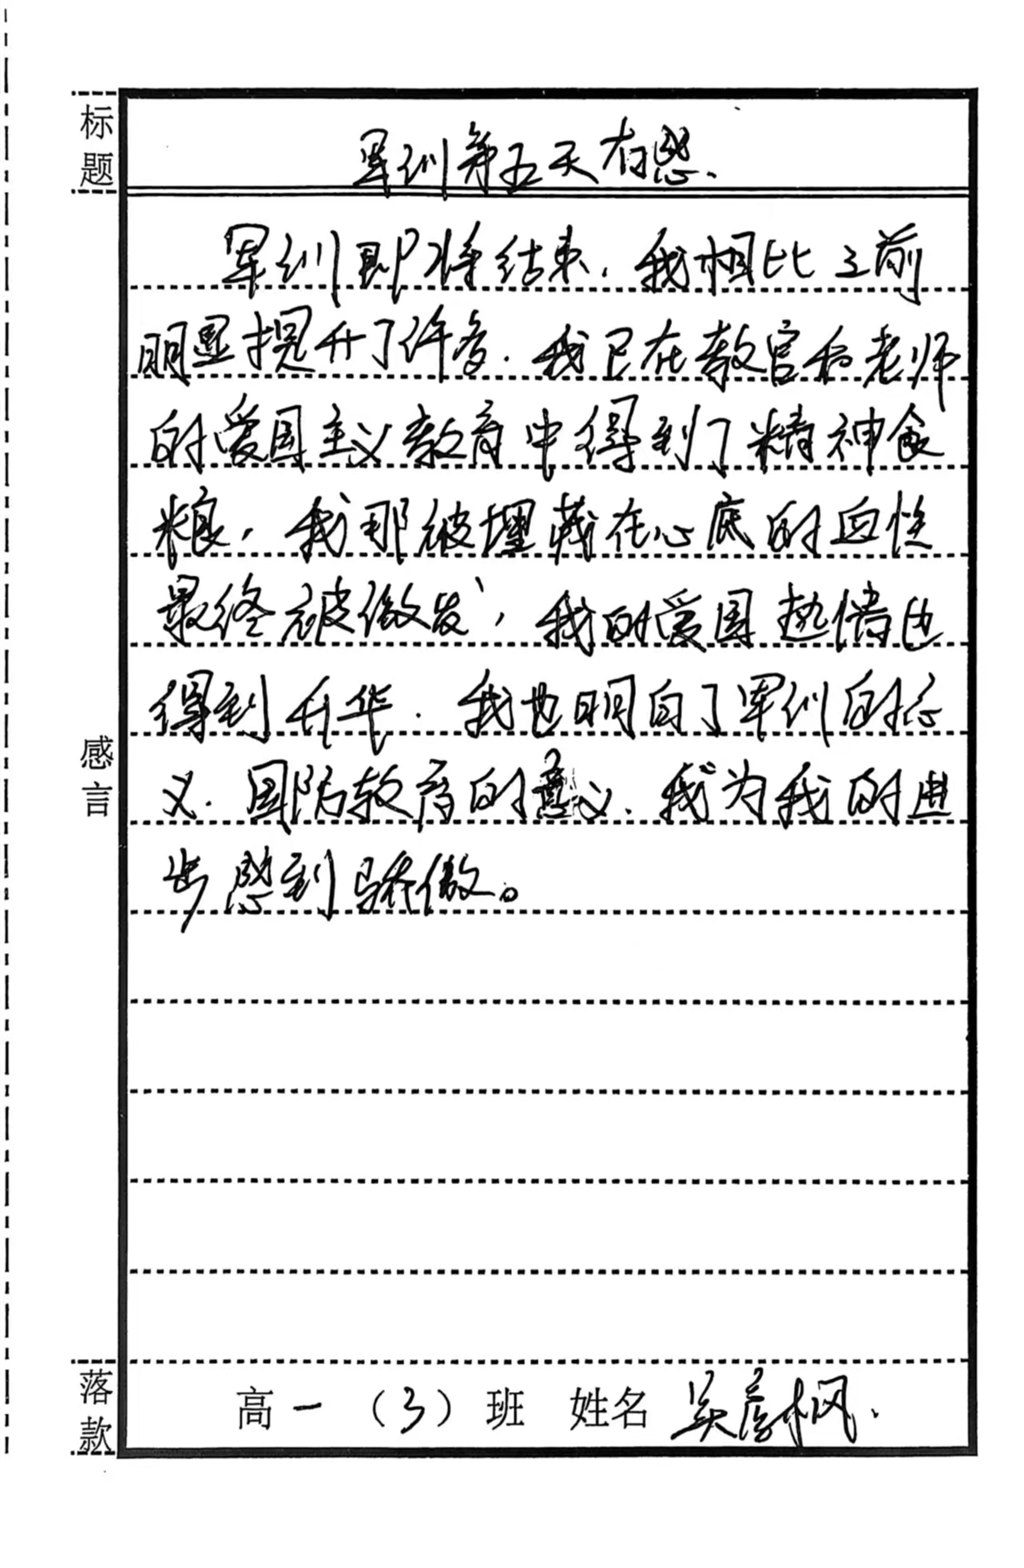 标题
军训第五天有感.
军训即将结束.我相比之前
明显提升了许多.我已在教官和老师
的爱国主义教育中得到了精神食
粮,我那被埋藏在心底的血性
最终被激发,我的爱国热情也
得到升华.我也明白了军训的意
义.国防教育的意义.我为我的进
步感到骄傲。
感言
落款
高一(3)班 姓名 吴彦枫.